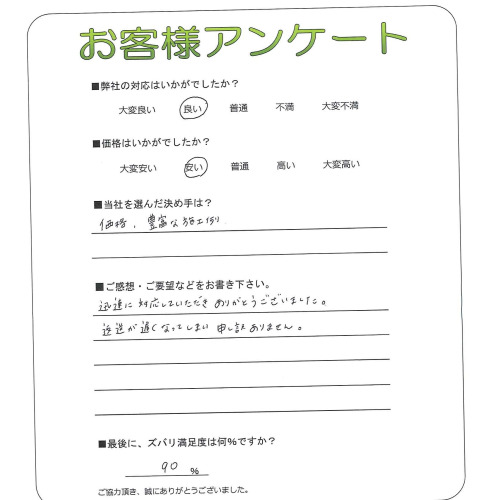 お客様アンケート
■弊社の対応はいかがでしたか？
大変良い 良い 普通 不満 大変不満
■価格はいかがでしたか？
大変安い 安い 普通 高い 大変高い
■当社を選んだ決め手は？
価格，豊富な施工例
■ご感想・ご要望などをお書き下さい。
迅速に対応していただきありがとうございました。
返送が遅くなってしまい申し訳ありません。
■最後に、ズバリ満足度は何%ですか？
90 %
ご協力頂き、誠にありがとうございました。